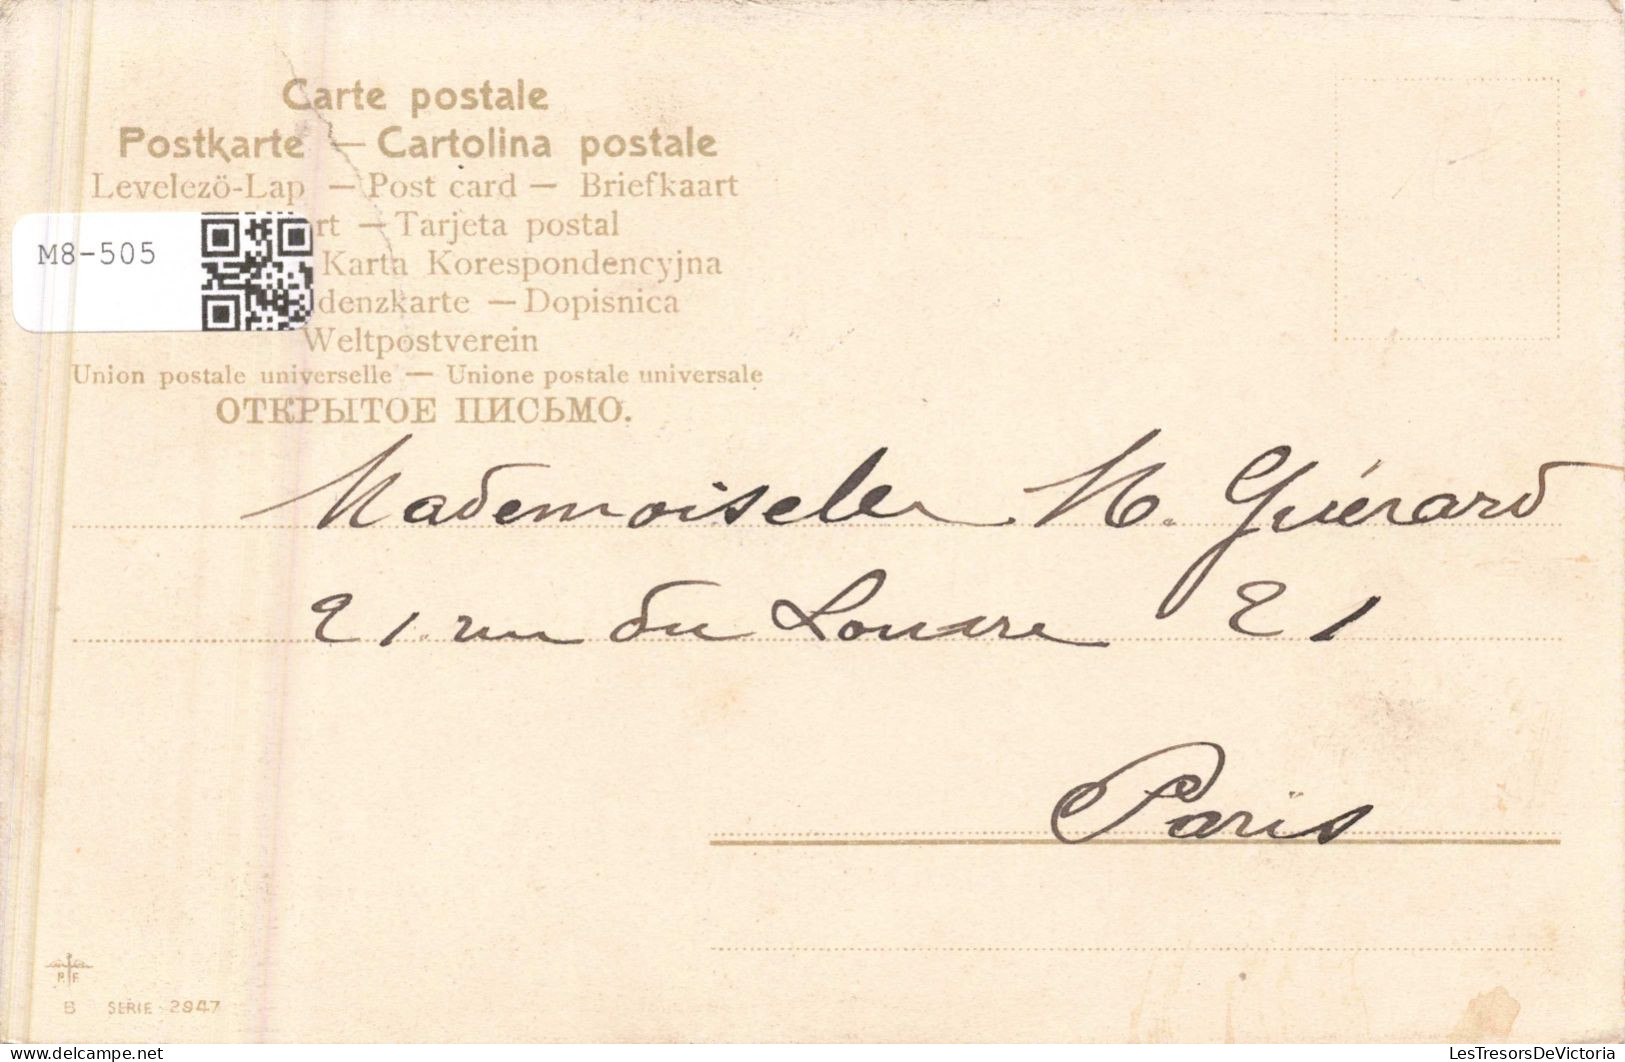 Carte postale
Postkarte — Cartolina postale
Levelező-Lap — Post card — Briefkaart
rt — Tarjeta postal
M8-505
Karta Korespondencyjna
denzkarte — Dopisnica
Weltpostverein
Union postale universelle — Unione postale universale
ОТКРЫТОЕ ПИСЬМО.
Mademoiselle M. Guérard
21 rue du Louvre 21
Paris
P. F.
B SERIE 2947
delcampe.net
LesTresorsDeVictoria